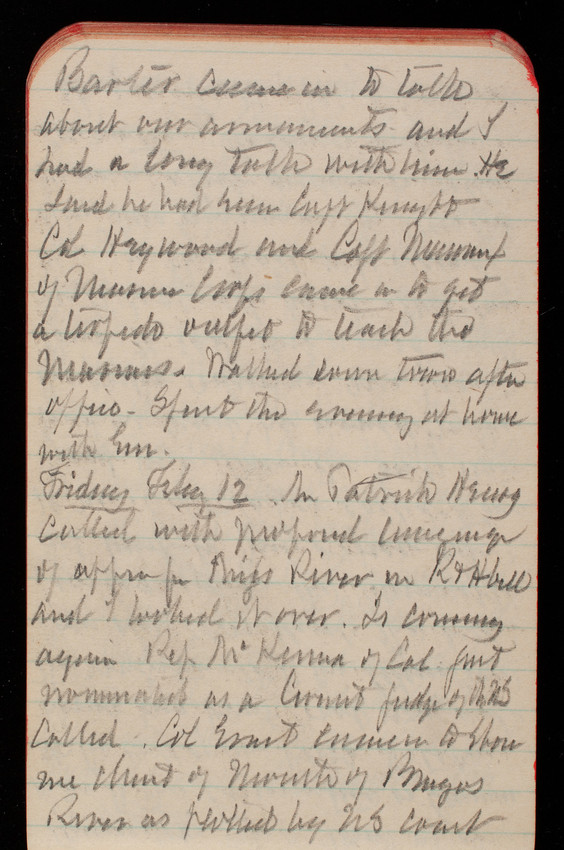 Baxter came in to talk
about our armaments and I
had a long talk with him. He
said he had been Capt Knights
Col Heywood and Capt
of Marine Corps came in to get
a torpedo outfit to teach the
Marines. Walked down town after
office. Spent the evening at home
with Em.
Friday Feby 12 Mr Patrick Henry
called with proposed language
of appro for Miss River in R & H bill
and I looked it over. Is coming
again Rep McKenna of Cal just
nominated as a Circuit judge of the US
called. Col Ernst came in to show
me chart of Mouth of Brazos
River as by US court